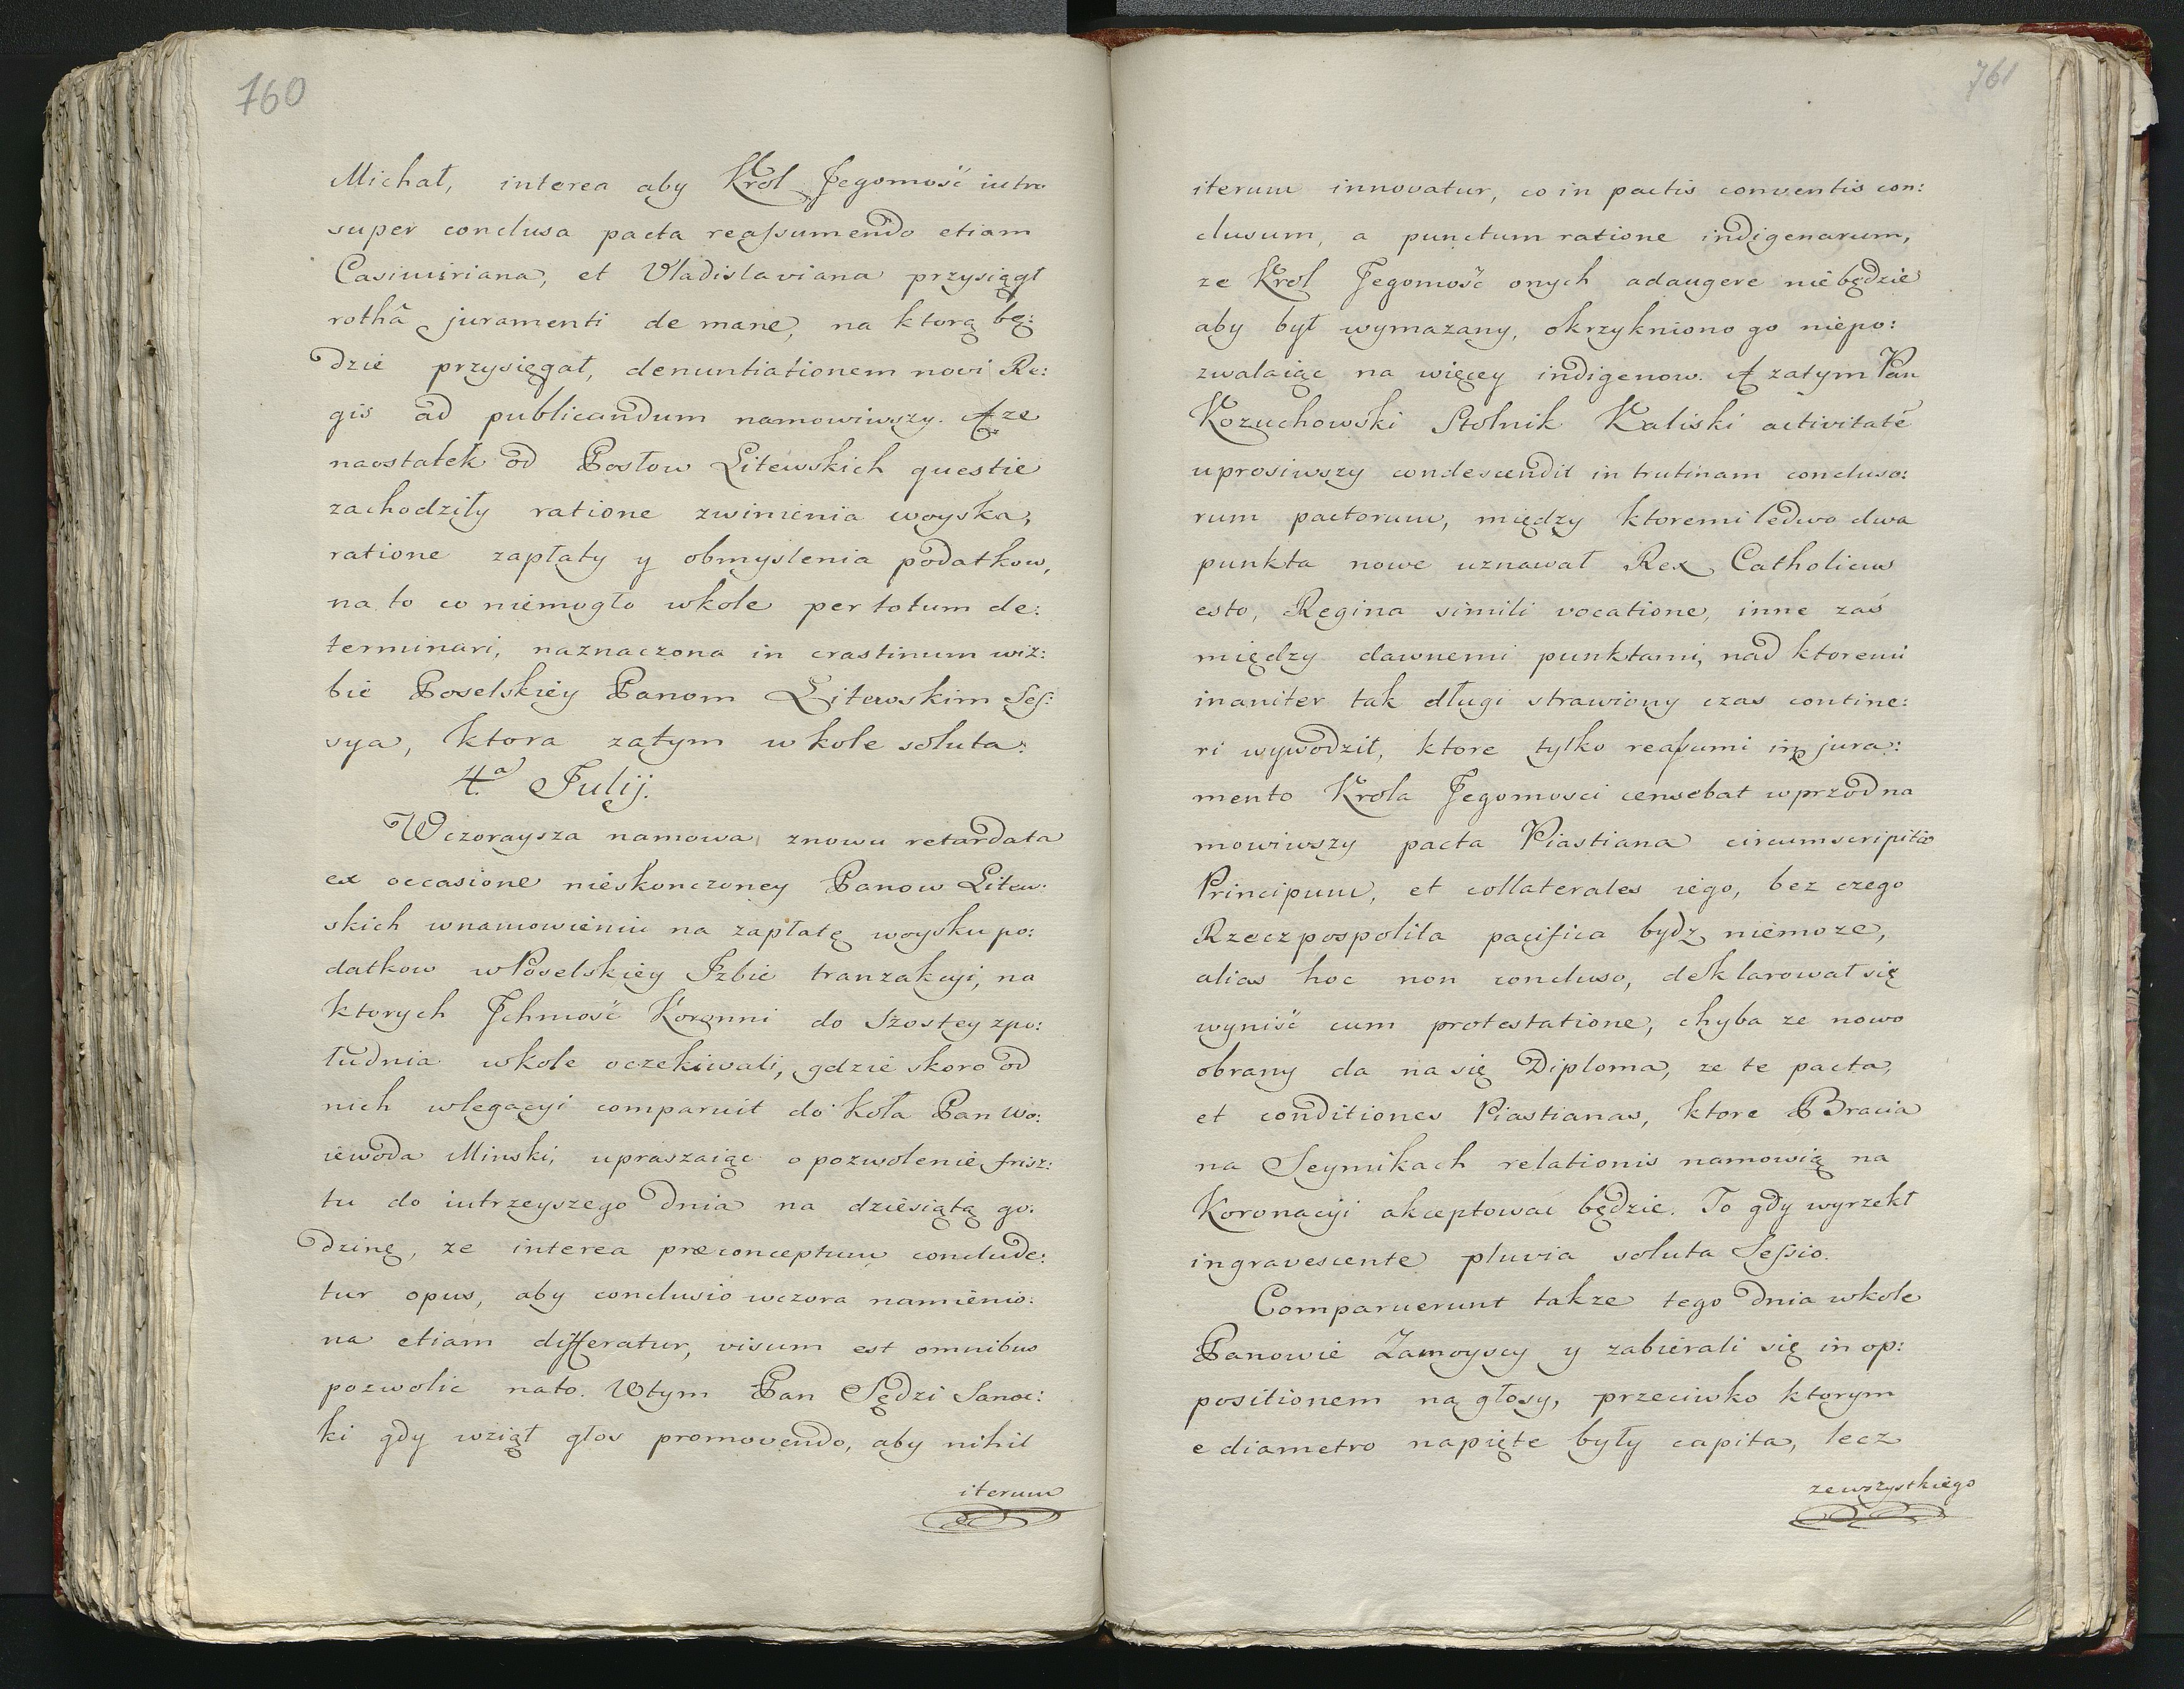 760
Michał, interea aby Krol Jegomość iutro
super conclusa pacta reaſsumendo etiam
Casimiriana, et Vladislaviana przysiągł
rothã juramenti de mane, na ktorą bę:
dzie przysięgał, denuntiationem novi Re:
gis ad publicandum namowiwszy. A ze
naostatek od Posłow Litewskich questie
zachodziły ratione zwinienia woyska,
ratione zapłaty y obmyslenia podatkow,
na to co niemogło wkole per totum de:
terminari, naznaczona in crastinum wiz:
bie Poselskiey Panom Litewskim Seſ:
sya, ktora zatym w kole soluta.
4.a Julij.
Wczoraysza namowa znowu retardata
ex occasione nieskonczoney Panow Litew:
skich wnamowieniu na zapłatę woysku po:
datkow w Poselskiey Izbie tranzakcyi, na
ktorych Jchmość Koronni do szostey zpo:
łudnia wkole oczekiwali, gdzie skoro od
nich wlegacyi comparuit do Koła Pan Wo:
iewoda Minski, upraszaiąc o pozwolenie frisz:
tu do iutrzeyszego dnia na dziesiątą go:
dzinę, ze interea præconceptum conclude:
tur opus, aby conclusio wczora namienio:
na etiam differatur, visum est omnibus
pozwolic nato. Wtym Pan Sędzi Sanoc:
ki gdy wziął głos promovendo, aby nihil
iterum
761
iterum innovatur, co in pactis conventis con:
clusum, a punctum ratione indigenarum,
ze Krol Jegomość onych adaugere niebędzie
aby był wymazany, okrzykniono go niepo:
zwalaiąc na więcey indigenow. A zatym Pan
Kozuchowski Stolnik Kaliski activitatẽ
uprosiwszy condescendit in trutinam concluso:
rum pactorum, między ktoremi ledwo dwa
punkta nowe uznawał Rex Catholicus
esto, Regina simili vocatione, inne zaś
między dawnemi punktami, nad ktoremi
inaniter tak długi strawiony czas contine:
ri wywodził, ktore tylko reaſsumi in jura:
mento Krola Jegomosci censebat wprzod na
mowiwszy pacta Piastiana circumscripta
Principum, et collaterales iego, bez czego
Rzeczpospolita pacifica bydz niemoze,
alias hoc non concluso, deklarował się
wyniść cum protestatione, chyba ze nowo
obrany da na się Diploma, ze te pacta,
et conditiones Piastianas, ktore Bracia
na Seymikach relationis namowią na
Koronacyi akceptować będzie. To gdy wyrzekł
ingravescente pluvia soluta Seſsio.
Comparuerunt takze tego dnia wkole
Panowie Zamoyscy y zabierali się in op:
positionem na głosy, przeciwko ktorym
e diametro napięte były capita, lecz
zewszystkiego